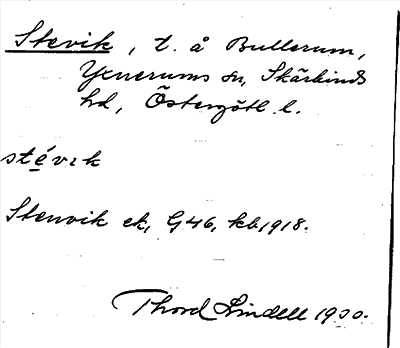 Stevik, t. å Bullerum,
Yxnerums sn, Skärkinds
hd, Östergötl. l.
stévik
Stenvik ek, G46, kb 1918.
Thord Lindell 1930.